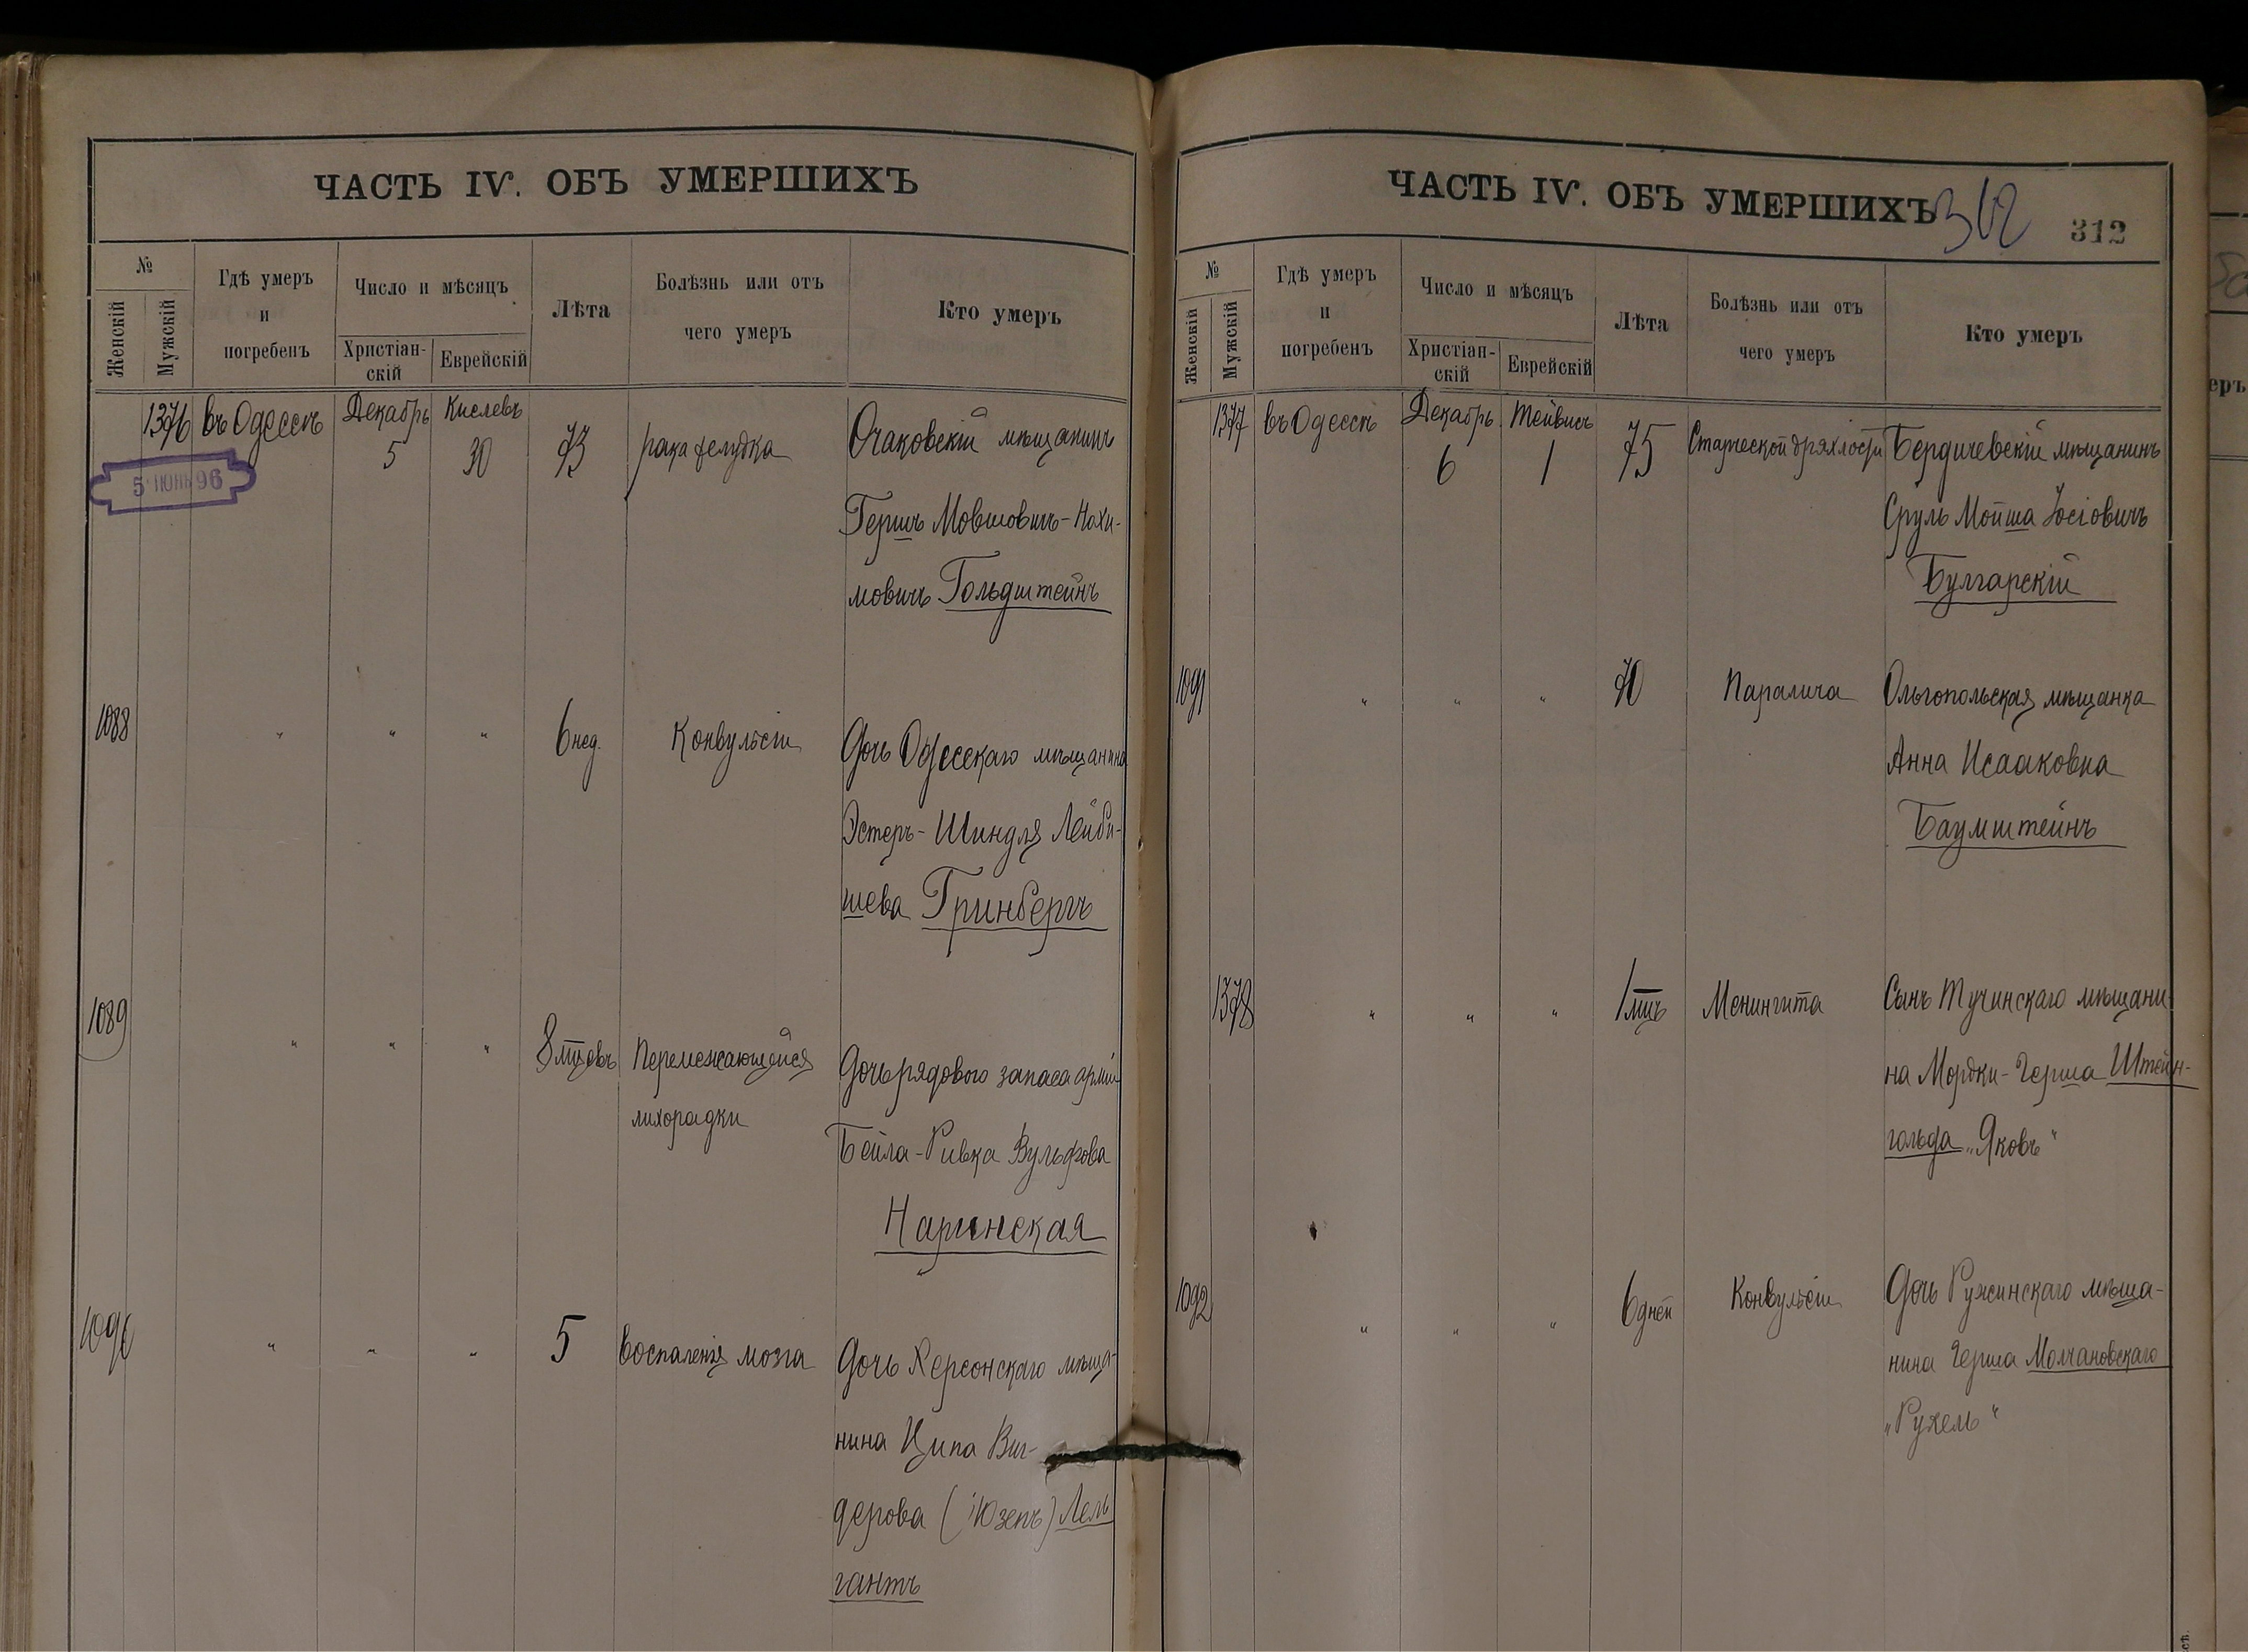 ЧАСТЬ IV. ОБЪ УМЕРШИХЪ
№
Женскій
Мужскій
Гдѣ умеръ
и
погребенъ
Число и мѣсяцъ
Христіан-
скій
Еврейскій
Лѣта
Болѣзнь или отъ
чего умеръ
Кто умеръ
1376 въ Одессѣ Декабрь Кислевъ
5 30 73 рака желудка Очаковскій мѣщанинъ
5 ІЮН 96
Гершъ Мовшовичъ-Нахи-
мовичъ Гольдштейнъ
1088 " " " 6 нед. Конвульсіи Дочь Одесскаго мѣщанина
Эстеръ-Шиндля Лейби-
шева Гринбергъ
1089 " " " 8 мцовъ Перемежающейся Дочь рядового запаса арміи
лихорадки
Бейла-Ривка Вульфова
Наринская
1090 " " " 5 воспаленія мозга Дочь Херсонскаго мѣща-
нина Ципа Виг-
дерова (Юзепъ) Лель
гантъ
ЧАСТЬ IV. ОБЪ УМЕРШИХЪ
312
312
№
Женскій
Мужскій
Гдѣ умеръ
и
погребенъ
Число и мѣсяцъ
Христіан-
скій
Еврейскій
Лѣта
Болѣзнь или отъ
чего умеръ
Кто умеръ
1377 въ Одессѣ Декабрь Тейвисъ
6 1 75 Старческой дряхлости Бердичевскій мѣщанинъ
Сруль Мойша Іосіовичъ
Булгарскій
1091 " " " 70 Паралича Ольгопольская мѣщанка
Анна Исааковна
Баумштейнъ
1378 " " " 1 мцъ Менингита Сынъ Тучинскаго мѣщани-
на Мордки-Герша Штейн-
гольда „Яковъ“
1092 " " " 6 дней Конвульсіи Дочь Ружинскаго мѣща-
нина Герша Молчановскаго
„Рухель“